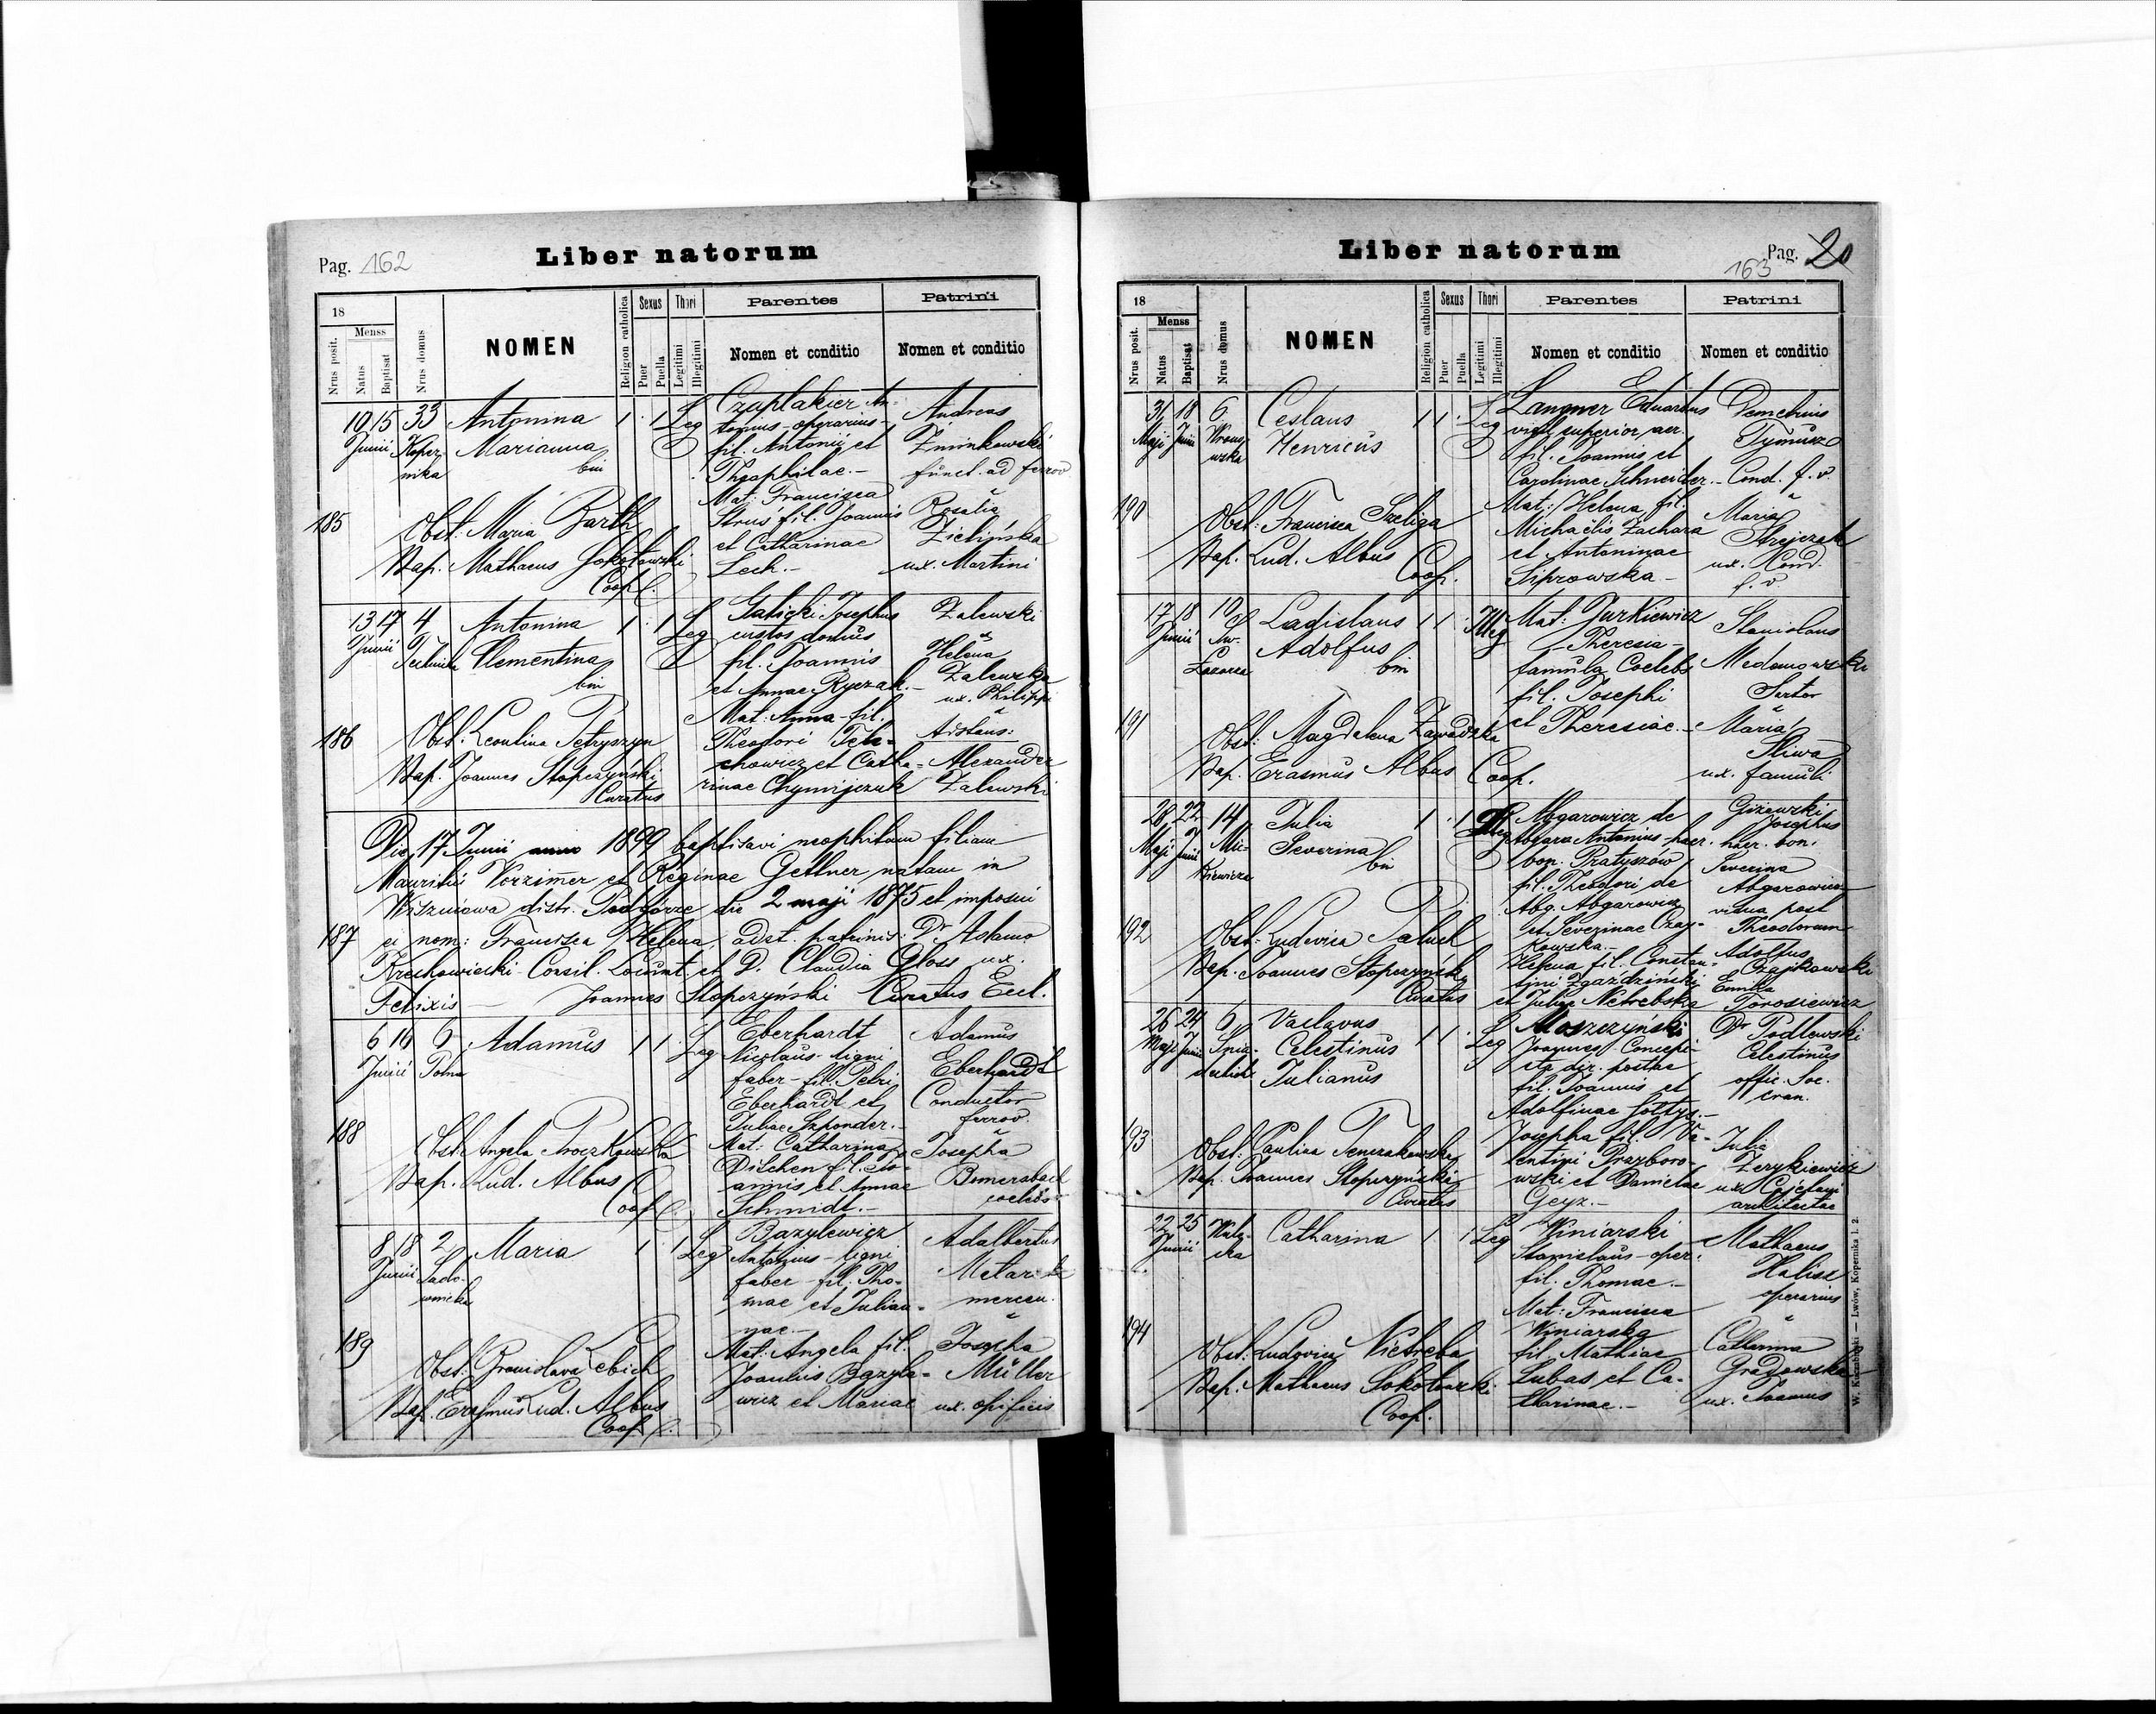 Pag. 162
Liber natorum
18
Menss
Nrus posit.
Natus
Baptisat
Nrus domus
NOMEN
Religion catholica
Sexus
Puer
Puella
Thori
Legitimi
Illegitimi
Parentes
Nomen et conditio
Patrini
Nomen et conditio
185
10 15 33
Junii Koper-
nika
Antonina
Marianna
bin
1 . 1 Leg
Czaplakier An-
tonius - operarius -
fil. Antonii et
Theophilae. -
Mat: Francisca
Struś fil. Joannis
et Catharinae
Lech. -
Andreas
Żminkowski
funct. ad ferrov
Rosalia
Zielińska
ux. Martini
Obst: Maria Barth
Bap. Mathaeus Sokołowski
Coop.
186
13 17 4
Junii Technicka
Antonina
Clementina
bin
1 . 1 Leg
Galicki Josephus
custos domus
fil. Joannis
et Annae Ryczak. -
Mat: Anna - fil.
Theodori
chowicz et Catha-
rinae Chymijczuk
Zalewski
Helena
Zalewska
ux. Philippi
Adstans:
Alexander
Zalewski
Obst: Leontina Petryszyn
Bap. Joannes Stopczyński
Curatus
187
Die 17 Junii 1899 baptisavi neophitam filiam
Mauritii Vorzimer et Reginae Gettner natam in
Wiszniowa distr. Podgórze die 2 maji 1875 et imposui
ei nom: Francisca Helena, adst. patrinis: Dr Adamo
Krechowiecki - Consil. Locumt. et D. Claudia Gloss ux.
Felixis - Joannes Stopczyński Curatus Eccl.
188
6 16 6
Junii Polna
Adamus
1 1 . Leg
Eberhardt
Nicolaus - ligni
faber - fil. Petri
Eberhardt et
Juliae Szponder. -
Mat: Catharina
Dilchen fil. Jo-
annis et Annae
Schmidt. -
Adamus
Eberhardt
Conductor
ferrov.
Josepha
Bomersbach
coelebs
Obst: Angela
Bap. Lud. Albus
Coop.
189
8 18 2
Junii Sado-
wnicka
Maria
1 1 Leg
Bazylewicz
Antonius - ligni
faber - fil. Tho-
mae et Julian-
nae. -
Mat: Angela fil.
Joannis Bazyle-
wicz et Mariae
Adalbertus
mercen.
Josepha
Müller
ux. opificis
Obst: Bronislava Lebich
Bap. Erasmus Lud. Albus
Coop.
Liber natorum
Pag. 20
163
18
Menss
Nrus posit.
Natus
Baptisat
Nrus domus
NOMEN
Religion catholica
Sexus
Puer
Puella
Thori
Legitimi
Illegitimi
Parentes
Nomen et conditio
Patrini
Nomen et conditio
190
31 18 6
Maji Junii Wrono-
wska
Ceslaus
Henricus
1 1 . Leg
Langner Eduardus
vigil superior aer.
fil. Joannis et
Carolinae Schneider. -
Mat: Helena fil.
Michaëlis Zachara
et Antoninae
Siprowska -
Demetrius
Tymusz
Cond. f. v.
Maria
Strejczek
ux. Cond.
f. v.
Obst: Francisca Szeliga
Bap. Lud. Albus
Coop.
191
17 18 10
Junii Św.
Łazarza
Ladislaus
Adolfus
bin
1 1 . Illeg
Mat: Jurkiewicz
- Theresia -
famula Coelebs
fil. Josephi
et Theresiae. -
Stanislaus
Medanowski
Sartor
Maria
Śliwa
ux. famuli
Obst: Magdalena Zawadzka
Bap. Erasmus Albus Coop.
192
28 22 14
Maji Junii Mic-
kiewicza
Julia
Severina
bin
1 . 1 Leg
Abgarowicz de
Abgara Antonius - haer.
bon. Bratyszów
fil. Theodori de
Abg. Abgarowicz
et Severinae Czaj-
kowska. -
Helena fil. Constan-
tini Zgaździński
et Juliae Netrebska
Giżowski
Josephus
haer. bon.
Severina
Abgarowicz
vidua post
Theodorum
Adolfus
Czajkowski
Emilia
Torosiewicz
Obst: Ludovica Paluch
Bap. Joannes Stopczyński
Curatus
193
26 24 6
Maji Junii Śnia-
deckich
Vaclavus
Celestinus
Julianus
1 1 . Leg
Moszczyński
Joannes Concepi-
sta dir. postae
fil. Joannis et
Adolfinae Sołtys. -
Josepha fil. Va-
lentini Przyboro-
wski et Danielae
Geyz. -
Dr Podlewski
Celestinus
offic. Soc.
cran.
Julia
Zerykiewicz
ux. Cajetani
architectae
Obst: Paulina
Bap. Joannes Stopczyński
Curatus
194
22 25
Junii
Catharina
1 . 1 Leg
Winiarski
Stanislaus - oper.
fil. Thomae. -
Mat: Francisca
Winiarska
fil. Mathiae
Lubas et Ca-
tharinae. -
Mathaeus
Halisz
operarius
Catharina
Gradowska
ux. Joannis
Obst: Ludovica Nietreba
Bap. Mathaeus Sokołowski
Coop.
Lwów, Kopernika l. 2.